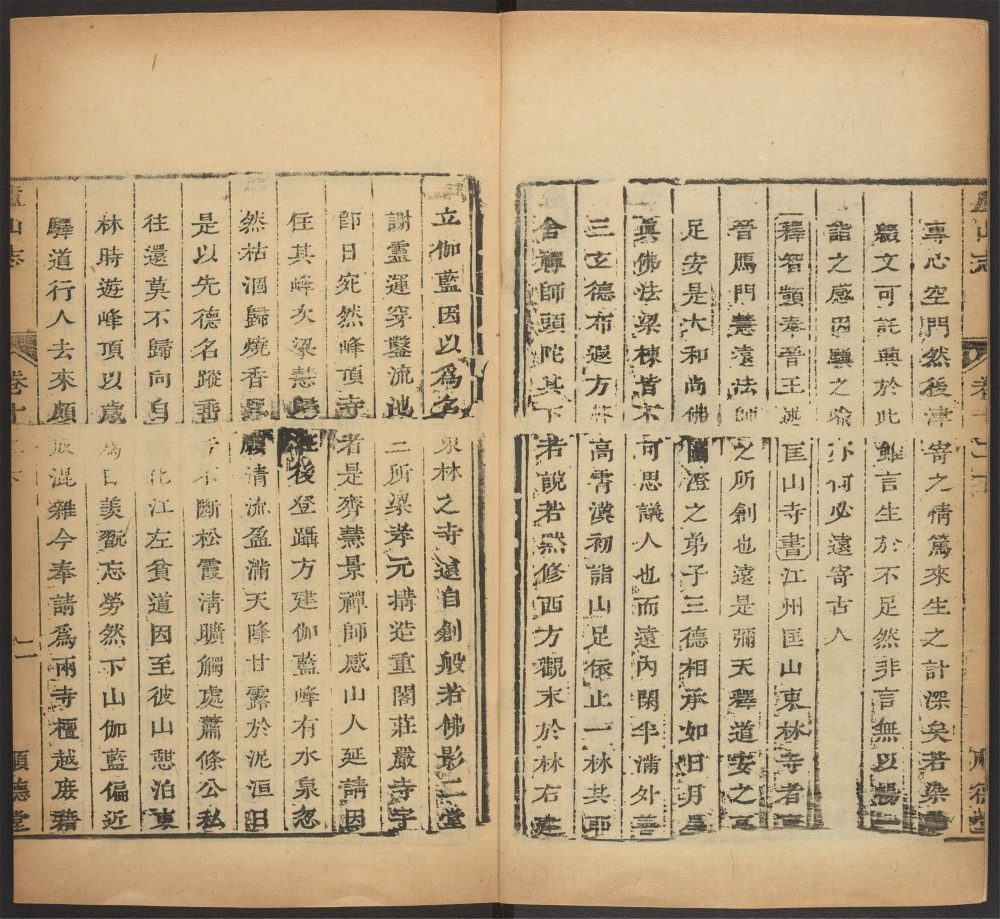 廬山志 卷十二下 順德堂
專心空門然後津寄之情篤來生之計深矣若染
綴文可託興於此雖言生於不足然非言無以暢一
詣之感因驥之喻亦何必遠寄古人
釋智顗奉晉王述匡山寺書江州匡山東林寺者
晉鴈門慧遠法師之所創也遠是彌天釋道安之
足安是大和尚佛圖澄之弟子三德相承如日月
真佛法梁棟皆不可思議人也而遠內閑半滿外善
三玄德布遐方高霄漢初詣山足依止一林共耶
舍禪師頭陀其下若說若默修西方觀末於林右建
立伽藍因以為名東林之寺遠自創般若佛影二堂
謝靈運穿鑿流池二所梁孝元搆造重閣莊嚴寺宇
即日宛然峰頂寺者是齊慧景禪師感山人延請因
住其峰次梁慧歸後登躡方建伽藍峰有水泉忽
然枯涸歸燒香清流盈滿天降甘露於泥洹日
是以先德名蹤垂不斷松霞清曠觸處蕭條公私
往還莫不歸向自化江左貧道因至彼山憩泊東
林時遊峰頂以歲為日羨翫忘勞然下山伽藍偏近
驛道行人去來頗混雜今奉請為兩寺檀越庶藉
廬山志 卷十 順德堂